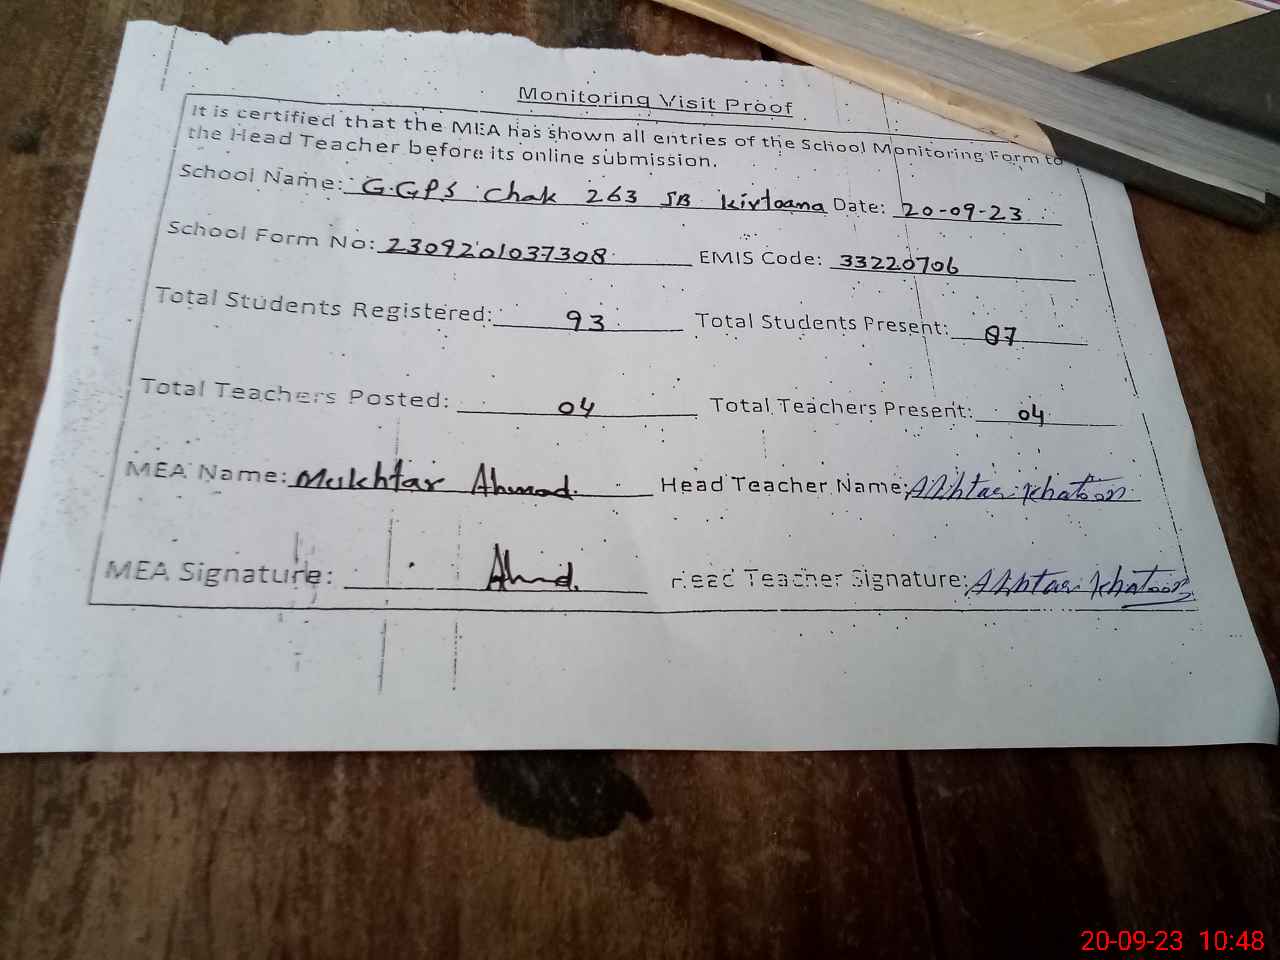 Monitoring Visit Proof
It is certified that the MEA has shown all entries of the School Monitoring Form to
the Head Teacher before its online submission.
School Name: G.GPS Chak 263 JB kirtoana Date: 20-09-23
School Form No: 2309201037308 EMIS Code: 33220706
Total Students Registered: 93 Total Students Present: 87
Total Teachers Posted: 04 Total Teachers Present: 04
MEA Name: Mukhtar Ahmad. Head Teacher Name: Akhtar Khatoon
MEA Signature: Ahmd. Head Teacher Signature: Akhtar Khatoon
20-09-23 10:48